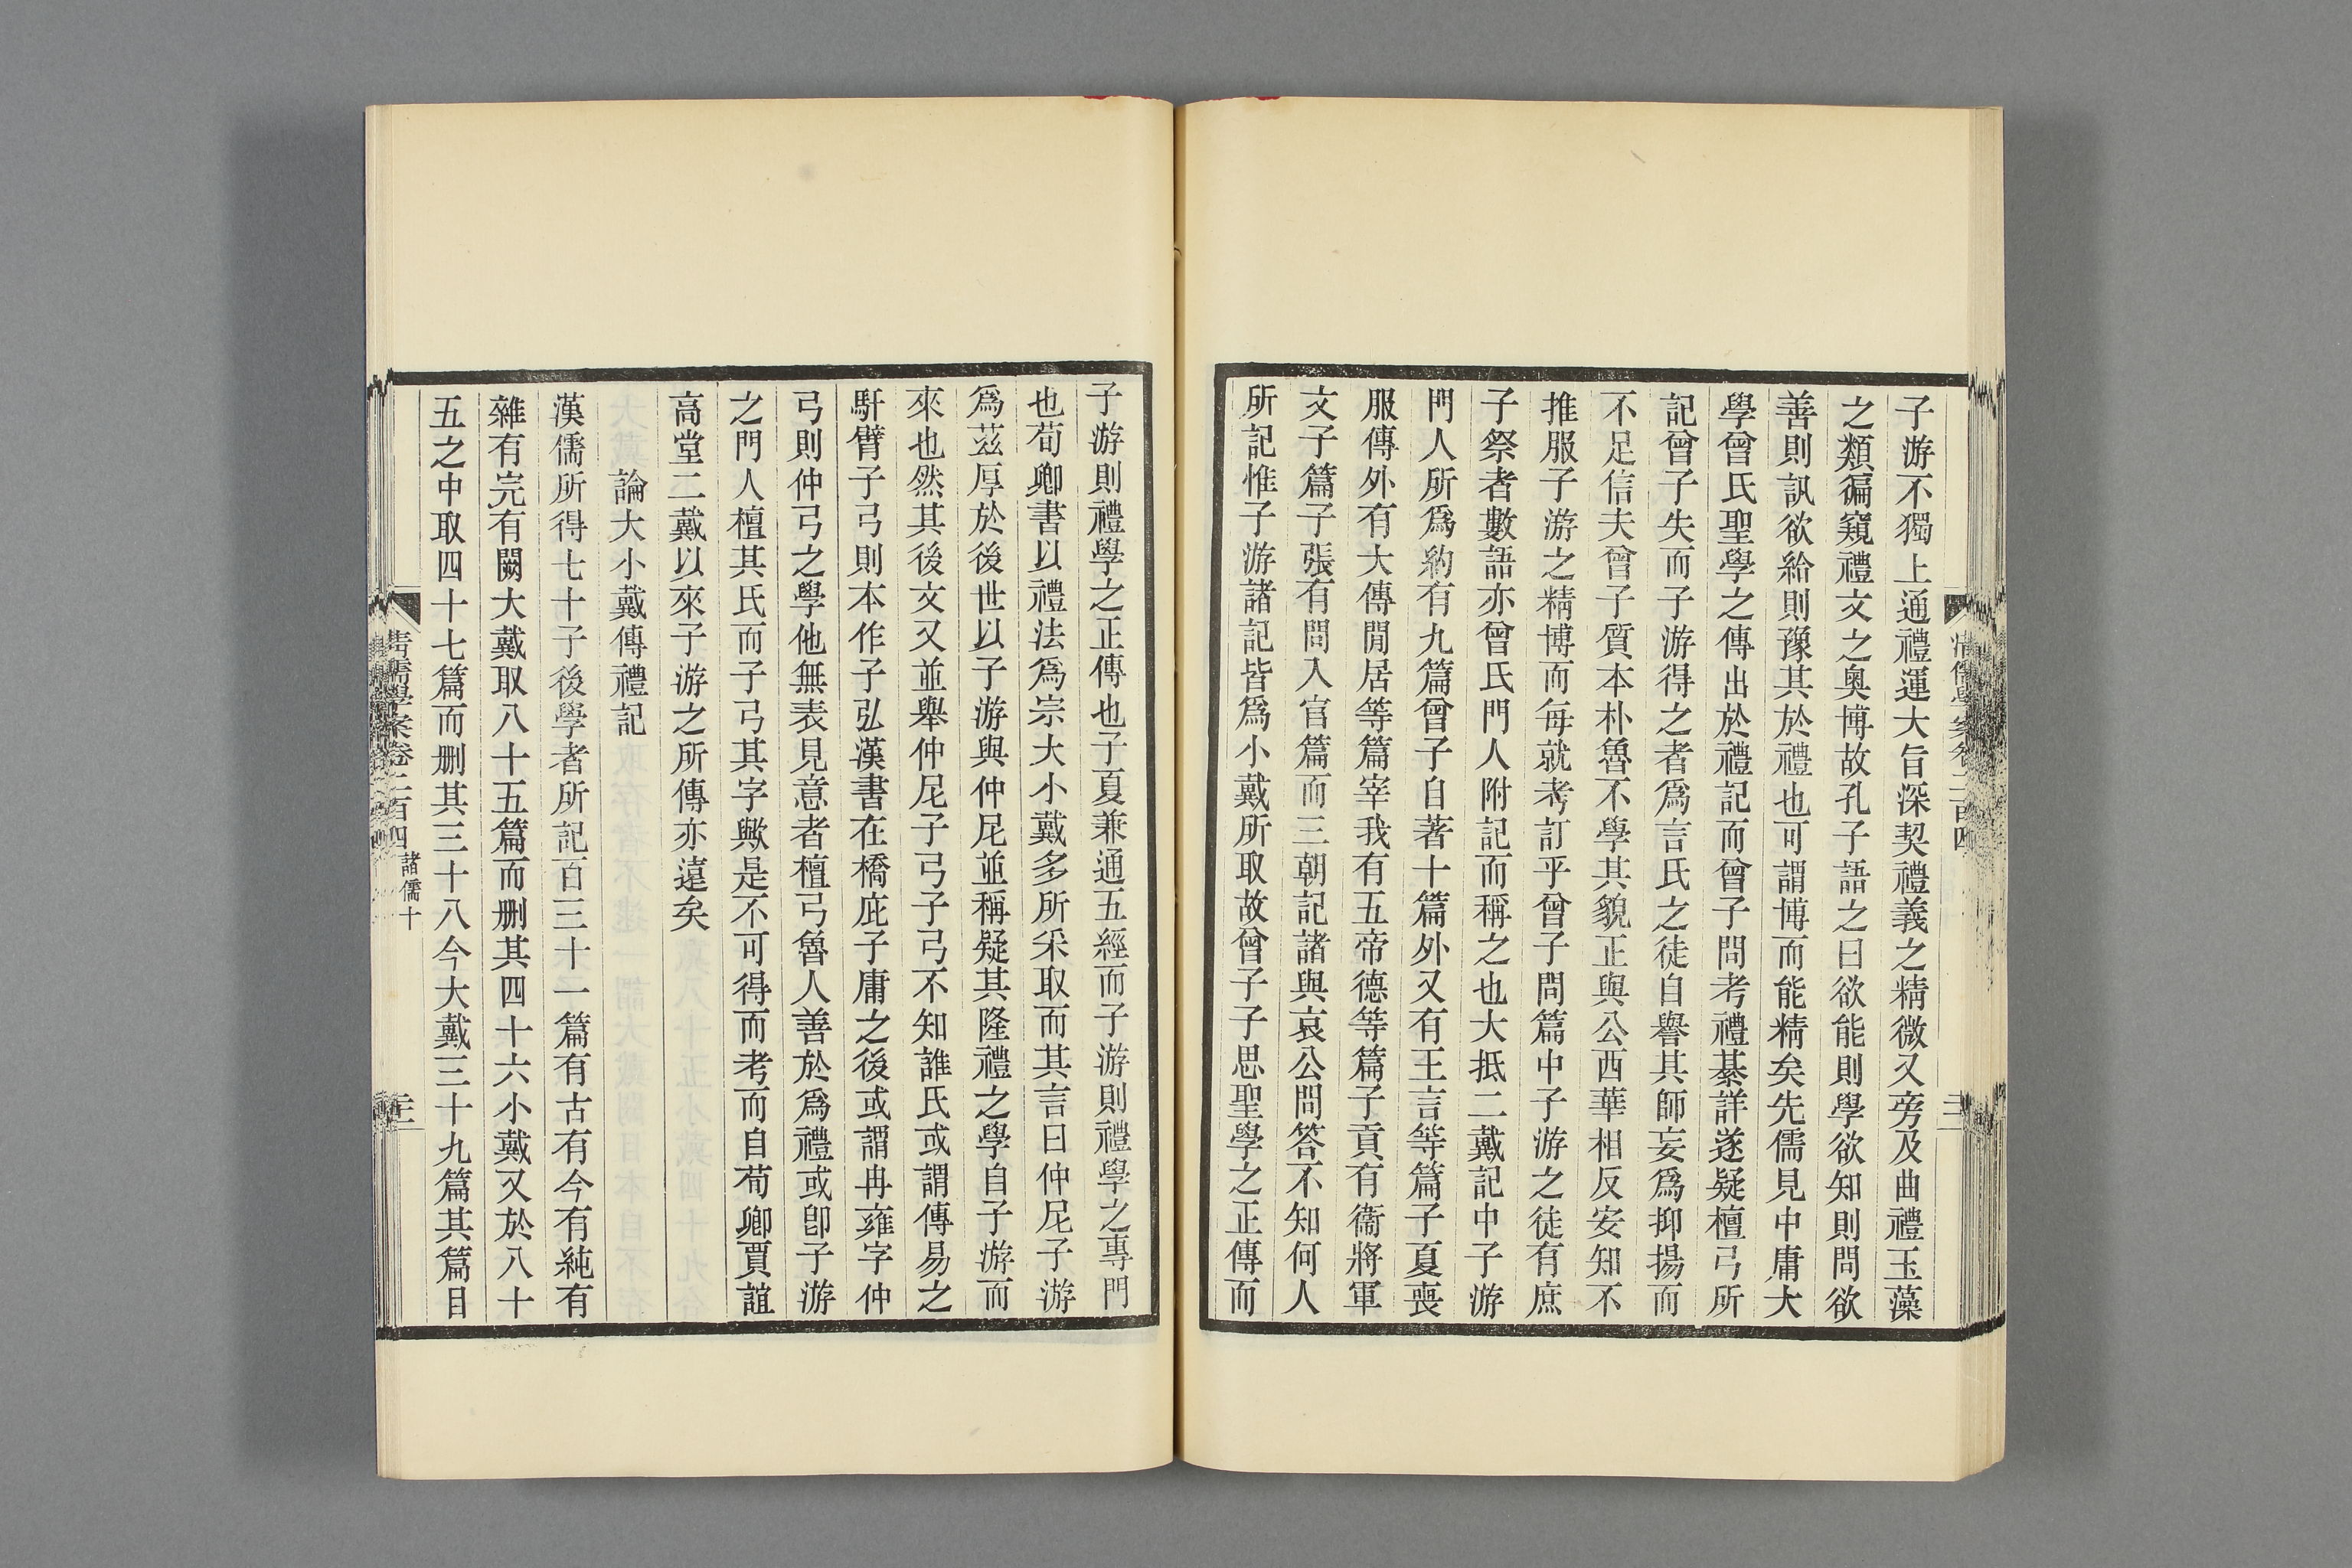 子游不獨上通禮運大旨深契禮義之精微又旁及曲禮玉藻
之類徧窺禮文之奧博故孔子語之曰欲能則學欲知則問欲
善則訊欲給則豫其於禮也可謂博而能精矣先儒見中庸大
學曾氏聖學之傳出於禮記而曾子問考禮綦詳遂疑檀弓所
記曾子失而子游得之者爲言氏之徒自譽其師妄爲抑揚而
不足信夫曾子質本朴魯不學其貌正與公西華相反安知不
推服子游之精博而每就考訂乎曾子問篇中子游之徒有庶
子祭者數語亦曾氏門人附記而稱之也大抵二戴記中子游
門人所爲約有九篇曾子自著十篇外又有王言等篇子夏喪
服傳外有大傳閒居等篇宰我有五帝德等篇子貢有衞將軍
文子篇子張有問入官篇而三朝記諸與哀公問答不知何人
所記惟子游諸記皆爲小戴所取故曾子子思聖學之正傳而
子游則禮學之正傳也子夏兼通五經而子游則禮學之專門
也荀卿書以禮法爲宗大小戴多所采取而其言曰仲尼子游
爲茲厚於後世以子游與仲尼並稱疑其隆禮之學自子游而
來也然其後文又並舉仲尼子弓子弓不知誰氏或謂傳易之
馯臂子弓則本作子弘漢書在橋庇子庸之後或謂冉雍字仲
弓則仲弓之學他無表見意者檀弓魯人善於爲禮或卽子游
之門人檀其氏而子弓其字歟是不可得而考而自荀卿賈誼
高堂二戴以來子游之所傳亦遠矣
論大小戴傳禮記
漢儒所得七十子後學者所記百三十一篇有古有今有純有
雜有完有闕大戴取八十五篇而删其四十六小戴又於八十
五之中取四十七篇而删其三十八今大戴三十九篇其篇目
清儒學案卷二百四 諸儒十